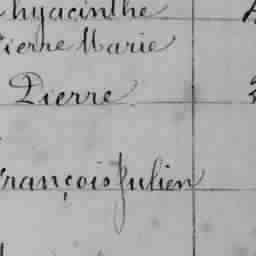 hyacinthe
Pierre Marie
Pierre
François Julien